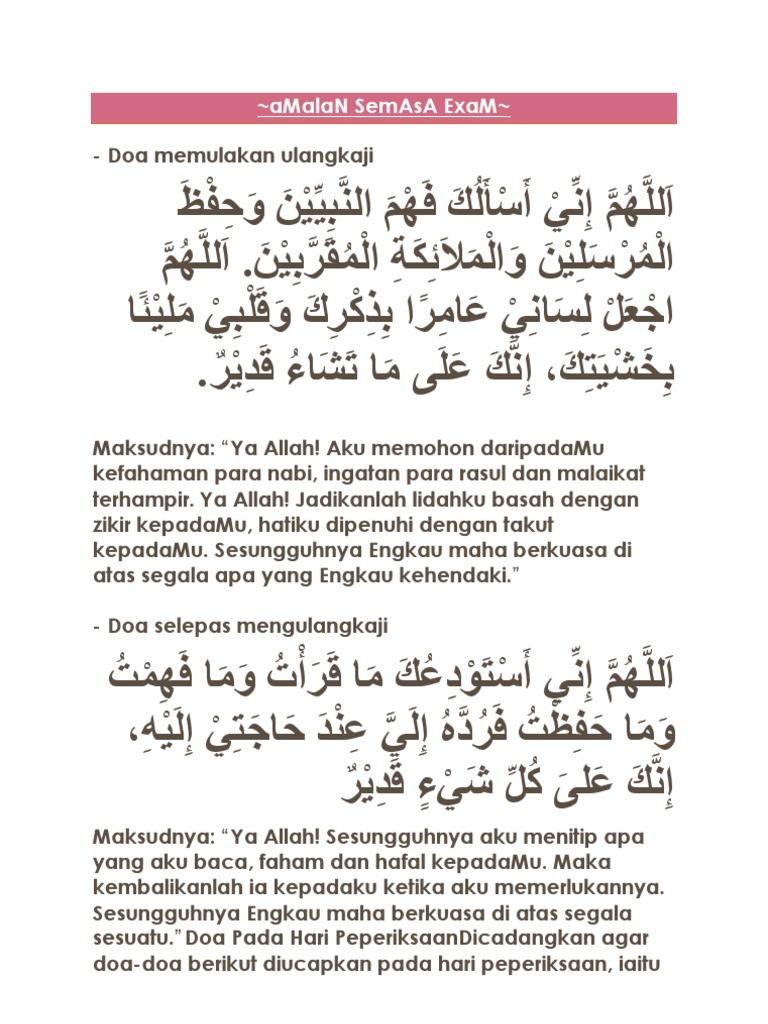 ~aMalaN SemAsA ExaM~
- Doa memulakan ulangkaji
اَللَّهُمَّ إِنِّيْ أَسْأَلُكَ فَهْمَ النَّبِيِّيْنَ وَحِفْظَ
الْمُرْسَلِيْنَ وَالْمَلاَئِكَةِ الْمُقَرَّبِيْنَ. اَللَّهُمَّ
اجْعَلْ لِسَانِيْ عَامِرًا بِذِكْرِكَ وَقَلْبِيْ مَلِيْئًا
بِخَشْيَتِكَ، إِنَّكَ عَلَى مَا تَشَاءُ قَدِيْرٌ.
Maksudnya: “Ya Allah! Aku memohon daripadaMu
kefahaman para nabi, ingatan para rasul dan malaikat
terhampir. Ya Allah! Jadikanlah lidahku basah dengan
zikir kepadaMu, hatiku dipenuhi dengan takut
kepadaMu. Sesungguhnya Engkau maha berkuasa di
atas segala apa yang Engkau kehendaki.”
- Doa selepas mengulangkaji
اَللَّهُمَّ إِنِّي أَسْتَوْدِعُكَ مَا قَرَأْتُ وَمَا فَهِمْتُ
وَمَا حَفِظْتُ فَرُدَّهُ إِلَيَّ عِنْدَ حَاجَتِيْ إِلَيْهِ،
إِنَّكَ عَلىَ كُلِّ شَيْءٍ قَدِيْرٌ
Maksudnya: “Ya Allah! Sesungguhnya aku menitip apa
yang aku baca, faham dan hafal kepadaMu. Maka
kembalikanlah ia kepadaku ketika aku memerlukannya.
Sesungguhnya Engkau maha berkuasa di atas segala
sesuatu.” Doa Pada Hari PeperiksaanDicadangkan agar
doa-doa berikut diucapkan pada hari peperiksaan, iaitu